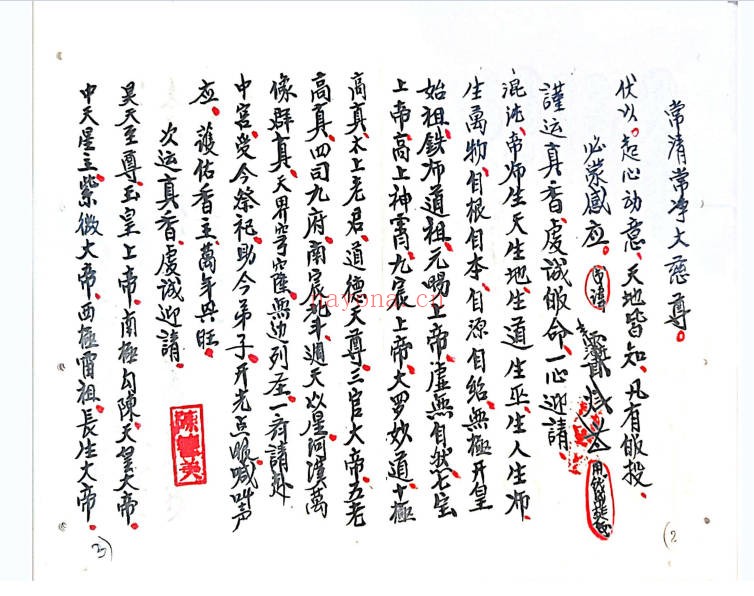 常清常净大慈尊
伏以起心动意天地皆知凡有皈投
必蒙感应
謹运真香虔诚皈命一心迎請
混沌帝师生天生地生道生巫生人生师
生萬物自根自本自源自始無極开皇
始祖鉄师道祖元赐上帝虚無自然七宝
上帝高上神霄九宸上帝大罗妙道十極
高真太上老君道德天尊三官大帝五老
高真四司九府南宸北斗週天以星河漢萬
像群真天界穹窿無边列圣一斉請赴
中宫受今祭祀助今弟子开光点眼喊叫声
应護佑香主萬年興旺
次运真香虔诚迎請
昊天至尊玉皇上帝南極勾陳天皇大帝
中天星主紫微大帝西極雷祖長生大帝
陳 美
(2
3)
nayona.cn